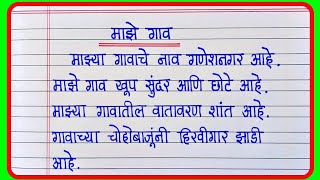 माझे गाव
माझ्या गावाचे नाव गणेशनगर आहे.
माझे गाव खूप सुंदर आणि छोटे आहे.
माझ्या गावातील वातावरण शांत आहे.
गावाच्या चोहोबाजूंनी हिरवीगार झाडी
आहे.